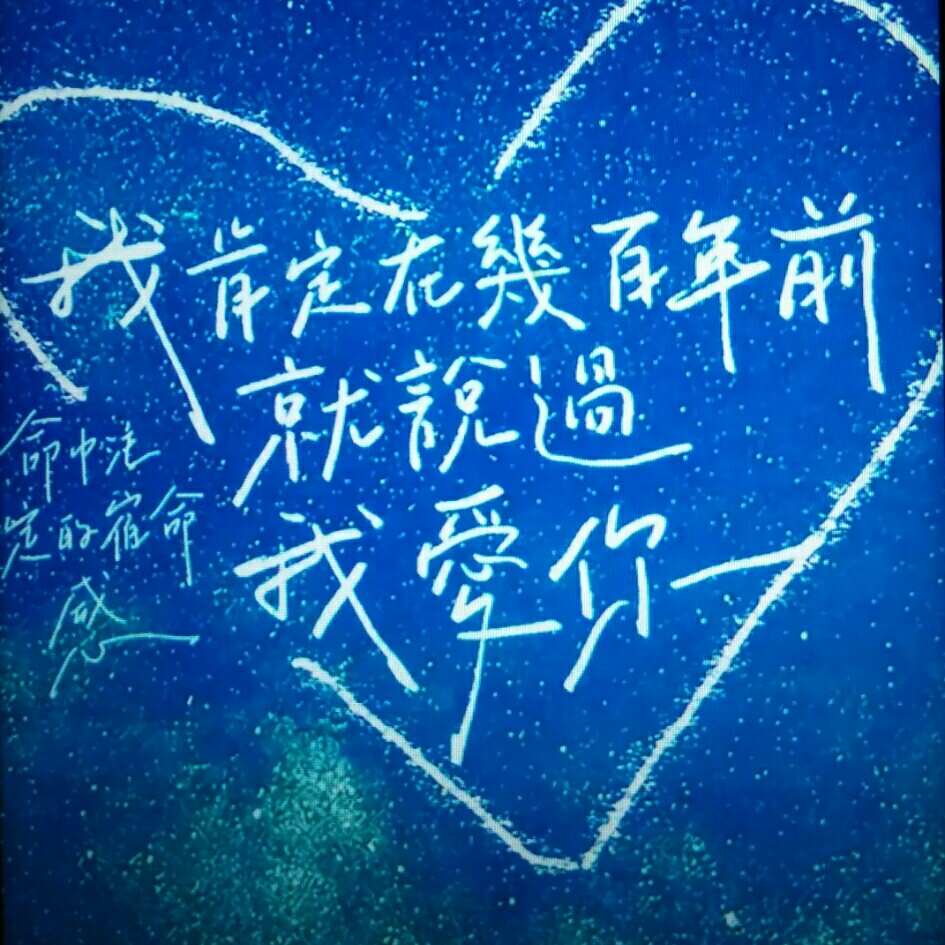 我肯定在幾百年前
就說過
我愛你
命中注
定的宿命
感